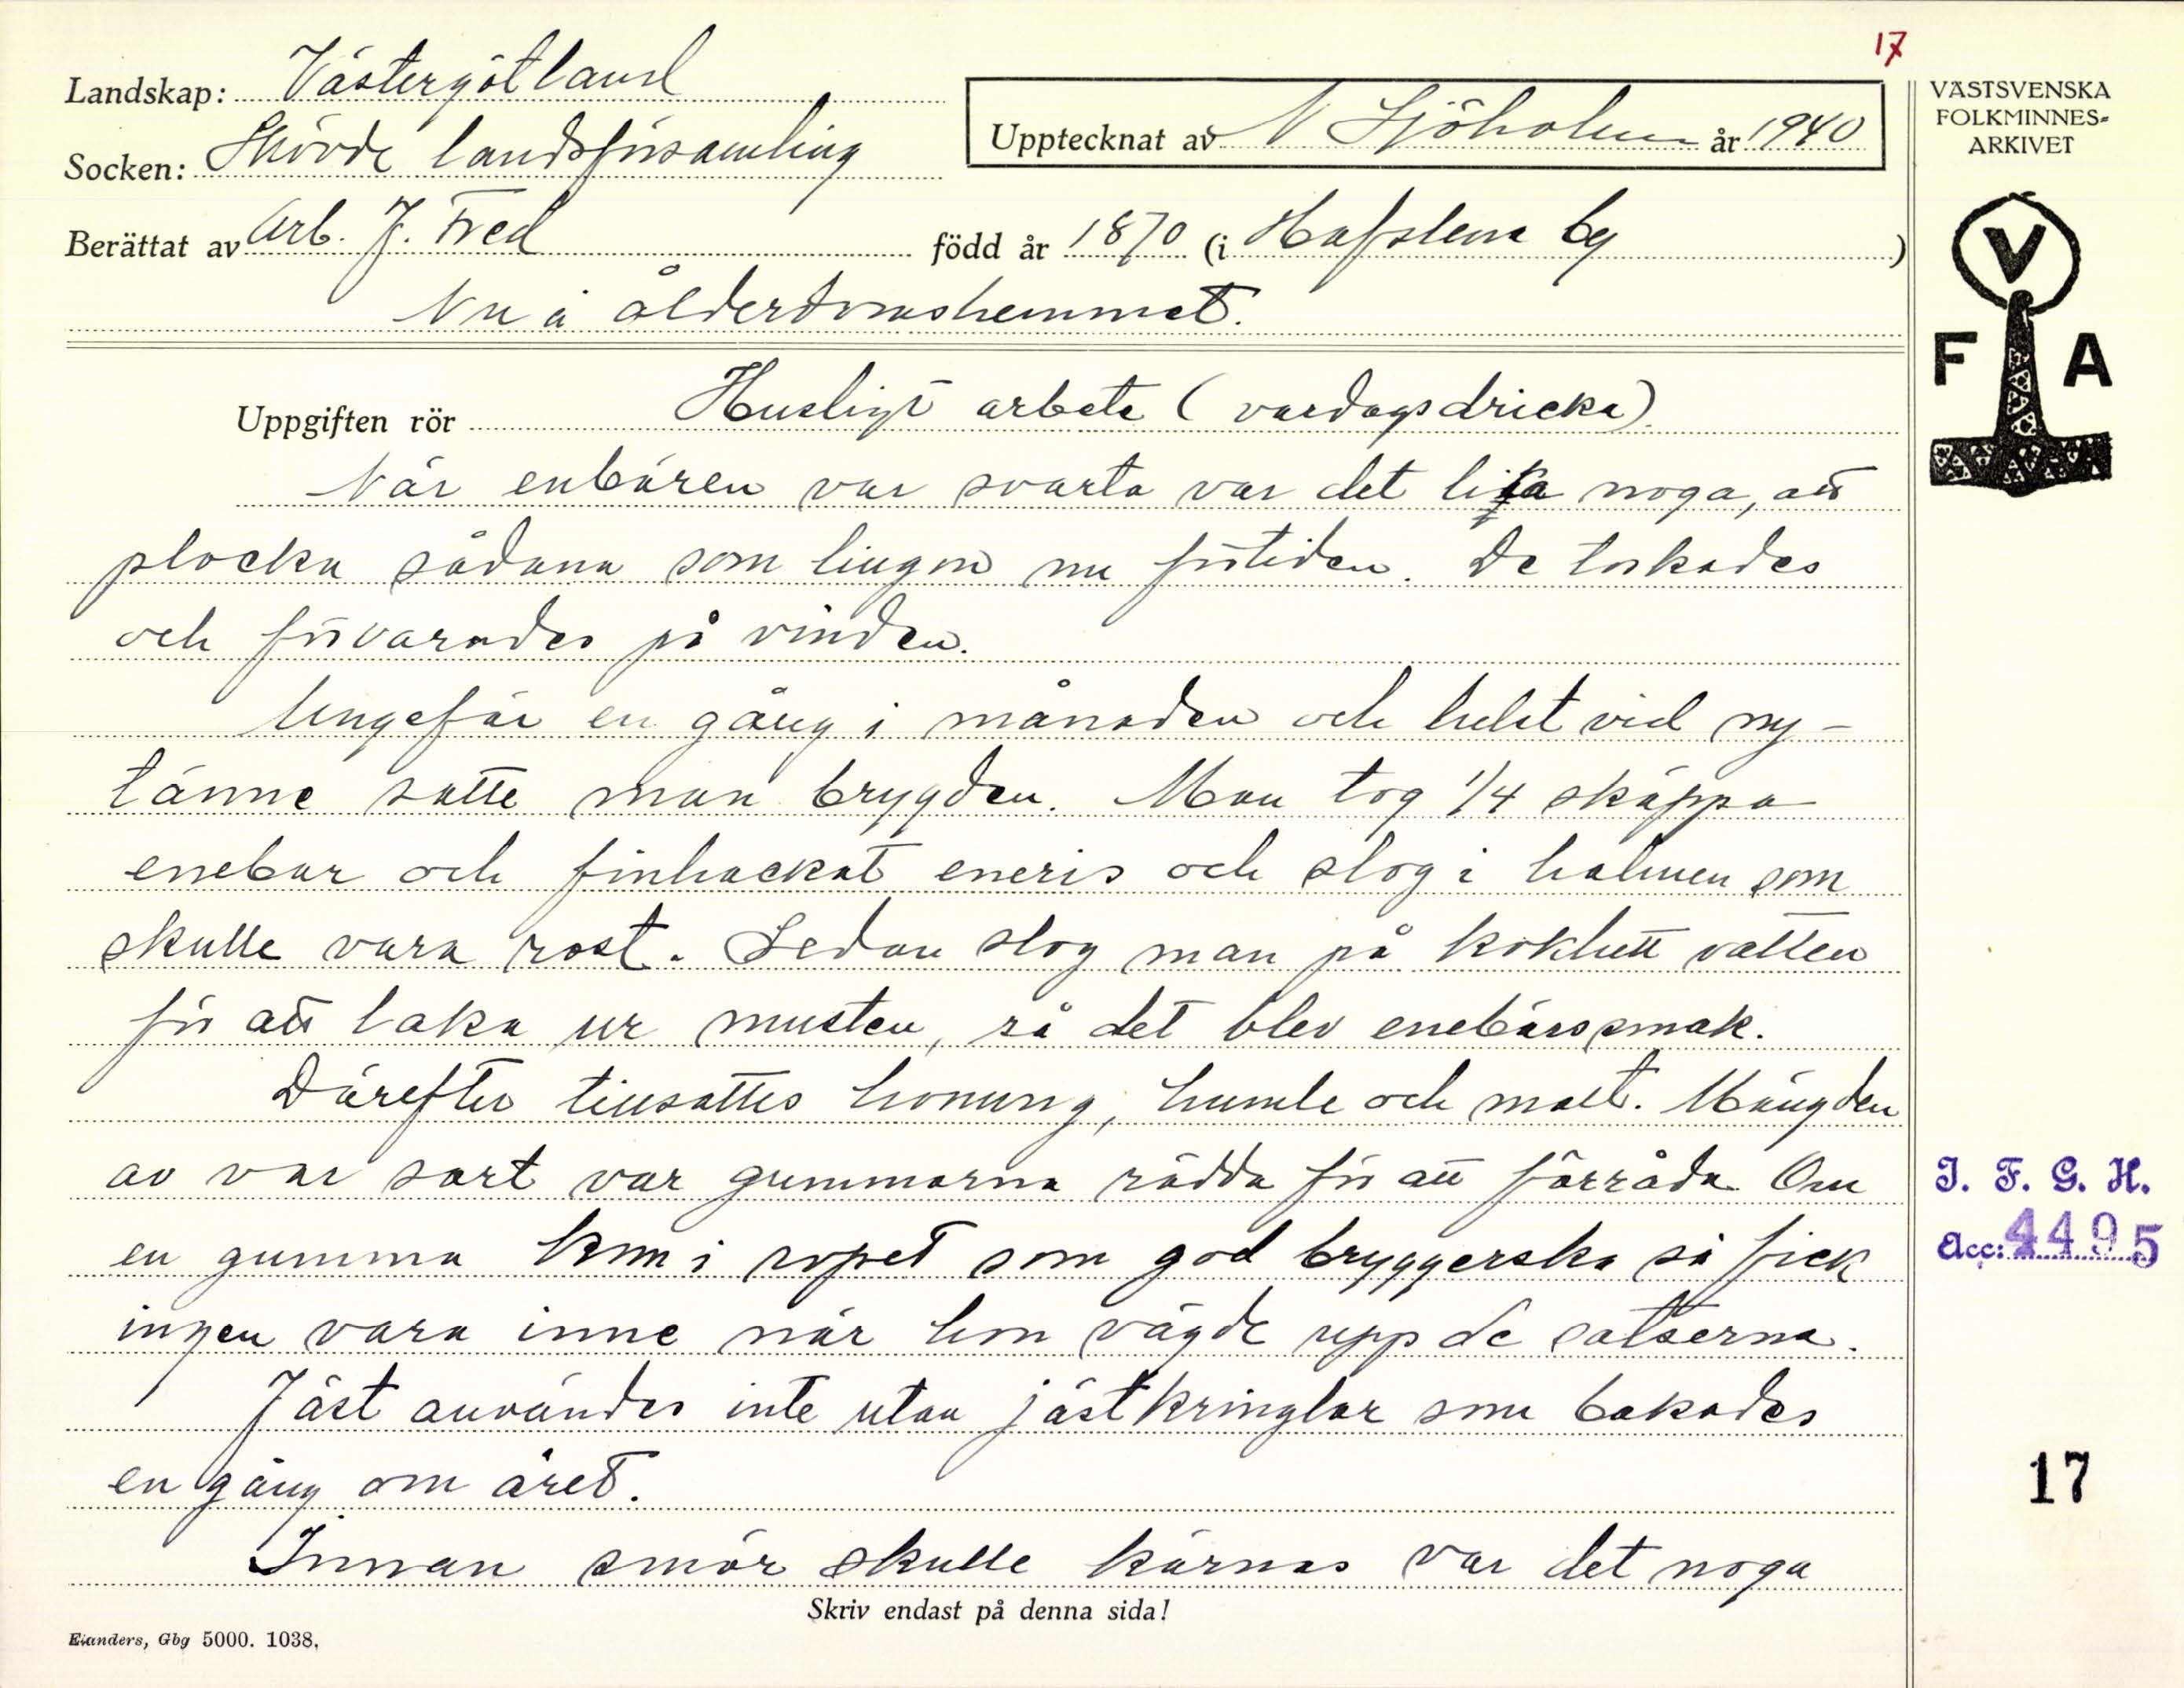 17
Landskap: Västergötland
Socken: Skövde landsförsamling
Upptecknat av N Sjöholm år 1940
Berättat av Arb. J. Fred född år 1870 (i Hafslena by)
Nu å ålderdomshemmet.
VÄSTSVENSKA
FOLKMINNES-
ARKIVET
V
F A
Uppgiften rör Husligt arbete (vardagsdricka)
När enbären var svarta var det lika noga, att
plocka sådana som lingon nu förtiden. De torkades
och förvarades på vinden.
Ungefär en gång i månaden och helst vid ny-
tänne satte man brygden. Man tog 1/4 skäppa
enebär och finhackat eneris och slog i halmen som
skulle vara rost. Sedan slog man på kokhett vatten
för att laka ur musten, så det blev enebärssmak.
Därefter tillsattes honung, humle och malt. Mängden
av var sort var gummorna rädda för att förråda. Om
en gumma kom i ropet som god bryggerska så fick
ingen vara inne när hon vägde upp de satserna.
Jäst användes inte utan jästkringlor som bakades
en gång om året.
Innan smör skulle kärnas var det noga
Skriv endast på denna sida!
Elanders, Gbg 5000. 1038.
I. F. G. H.
Acc: 4495
17